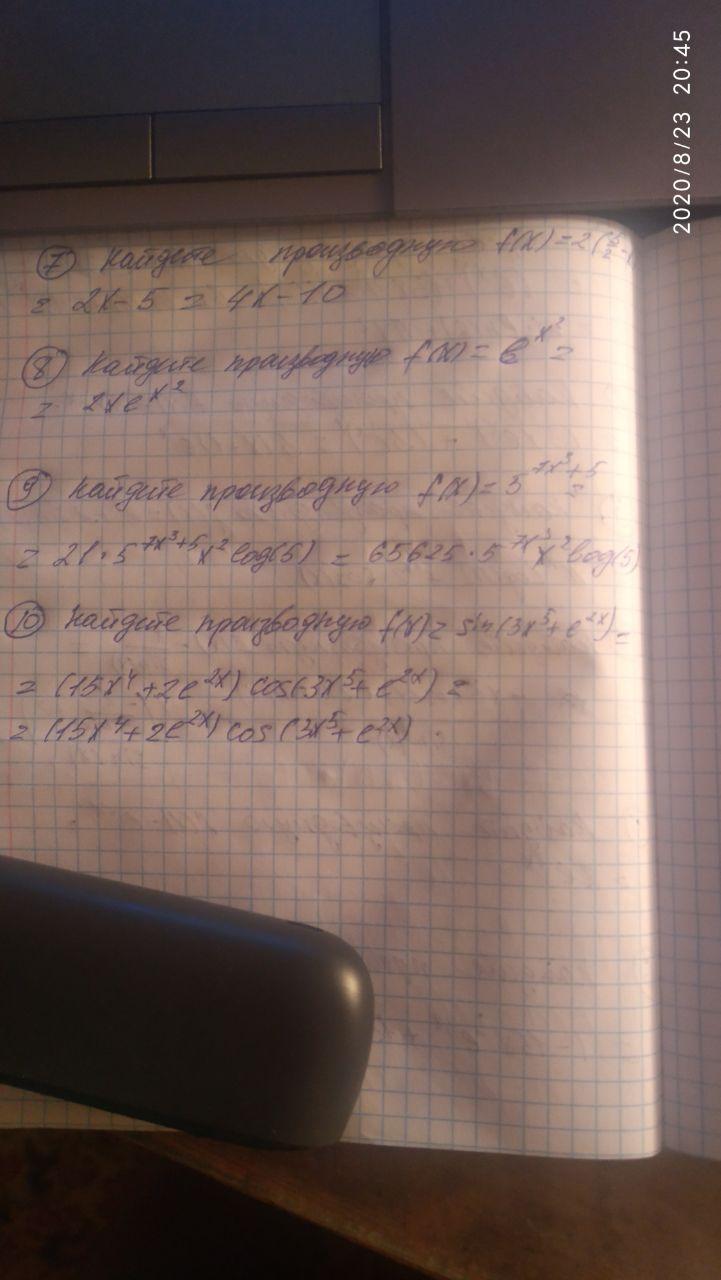 2020/8/23 20:45
⑦ Найдите производную f(x)=2(
= 2x-5 = 4x-10
⑧ Найдите производную f(x)= e^x² =
= 2xe^x²
⑨ Найдите производную f(x)= 5^7x³+5 =
= 21·5^7x³+5 x² log(5) = 65625·5^7x³ x² log(5)
⑩ Найдите производную f(x)= sin(3x⁵+e^2x) =
= (15x⁴+2e^2x) cos(3x⁵+e^2x) =
= (15x⁴+2e^2x) cos(3x⁵+e^2x)